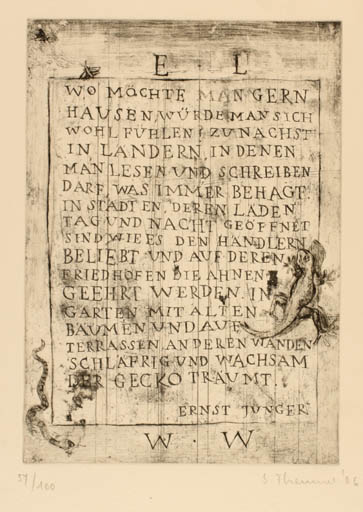 E L
WO MÖCHTE MAN GERN
HAUSEN, WÜRDE MAN SICH
WOHL FÜHLEN? ZUNÄCHST
IN LÄNDERN, IN DENEN
MAN LESEN UND SCHREIBEN
DARF, WAS IMMER BEHAGT.
IN STÄDTEN, DEREN LÄDEN
TAG UND NACHT GEÖFFNET
SIND WIE ES DEN HÄNDLERN
BELIEBT UND AUF DEREN
FRIEDHÖFEN DIE AHNEN
GEEHRT WERDEN. IN
GÄRTEN MIT ALTEN
BÄUMEN UND AUF
TERRASSEN, AN DEREN WÄNDEN
SCHLÄFRIG UND WACHSAM
DER GECKO TRÄUMT.
ERNST JÜNGER
W. W
/100 '86